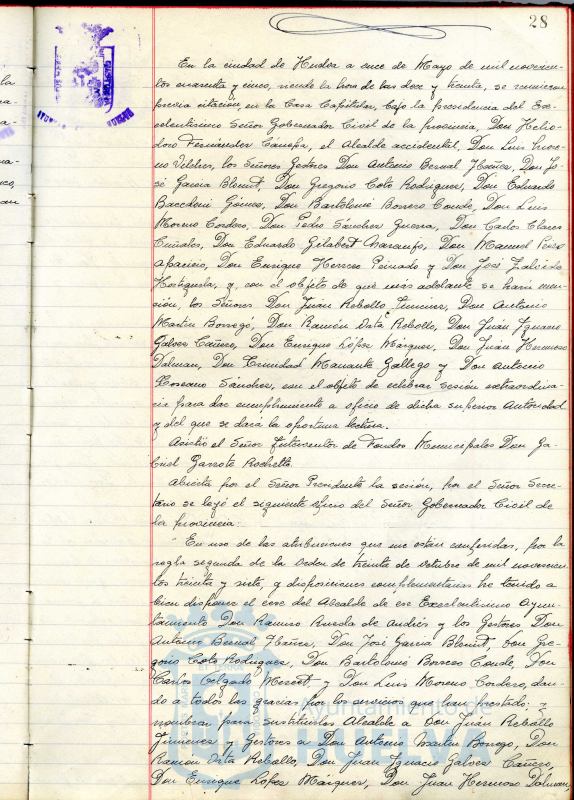 28
En la ciudad de Huelva a once de Mayo de mil novecien-
tos cuarenta y cinco, siendo la hora de las doce y treinta, se reunieron
previa citación en la Casa Capitular, bajo la presidencia del Ex-
celentísimo Señor Gobernador Civil de la provincia, Don Helio-
doro Fernández Cánepa, el Alcalde accidental, Don Luis
los Señores Gestores Don Antonio Bernal Ibáñez, Don Jo-
sé García Don Gregorio Coto Rodríguez, Don Eduardo
Gómez, Don Bartolomé Borrero Conde, Don Luis
Moreno Cordero, Don Pedro Sánchez Guerra, Don Carlos
Don Eduardo Gilabert Don Manuel
Aparicio, Don Enrique Herrero Peinado y Don José
y, con el objeto de que más adelante se hará men-
ción, los Señores Don Juan Rebollo Jiménez, Don Antonio
Martín Borrego, Don Ramón Orta Rebollo, Don Juan Ignacio
Gálvez Cañero, Don Enrique López Márquez, Don Juan Hermoso
Dalmau, Don Trinidad Gallego y Don Antonio
Toscano Sánchez, con el objeto de celebrar sesión extraordina-
ria para dar cumplimiento a oficio de dicha superior Autoridad
y del que se dará la oportuna lectura.
Asistió el Señor Interventor de Fondos Municipales Don Ga-
briel Garrote
Abierta por el Señor Presidente la sesión, por el Señor Secre-
tario se leyó el siguiente oficio del Señor Gobernador Civil de
la provincia:
"En uso de las atribuciones que me están conferidas, por la
regla segunda de la Orden de treinta de octubre de mil novecien-
tos treinta y siete, y disposiciones complementarias he tenido a
bien disponer el cese del Alcalde de ese Excelentísimo Ayun-
tamiento Don Ramiro Rueda de Andrés y los Gestores Don
Antonio Bernal Ibáñez, Don José García Don Gre-
gorio Coto Rodríguez, Don Bartolomé Borrero Conde, Don
Carlos Delgado y Don Luis Moreno Cordero, dan-
do a todos las gracias por los servicios que han prestado; y
nombrar para sustituirles Alcalde a Don Juan Rebollo
Jiménez y Gestores a Don Antonio Martín Borrego, Don
Ramón Orta Rebollo, Don Juan Ignacio Gálvez Cañero,
Don Enrique López Márquez, Don Juan Hermoso Dalmau,
Ayuntamiento de
HUELVA